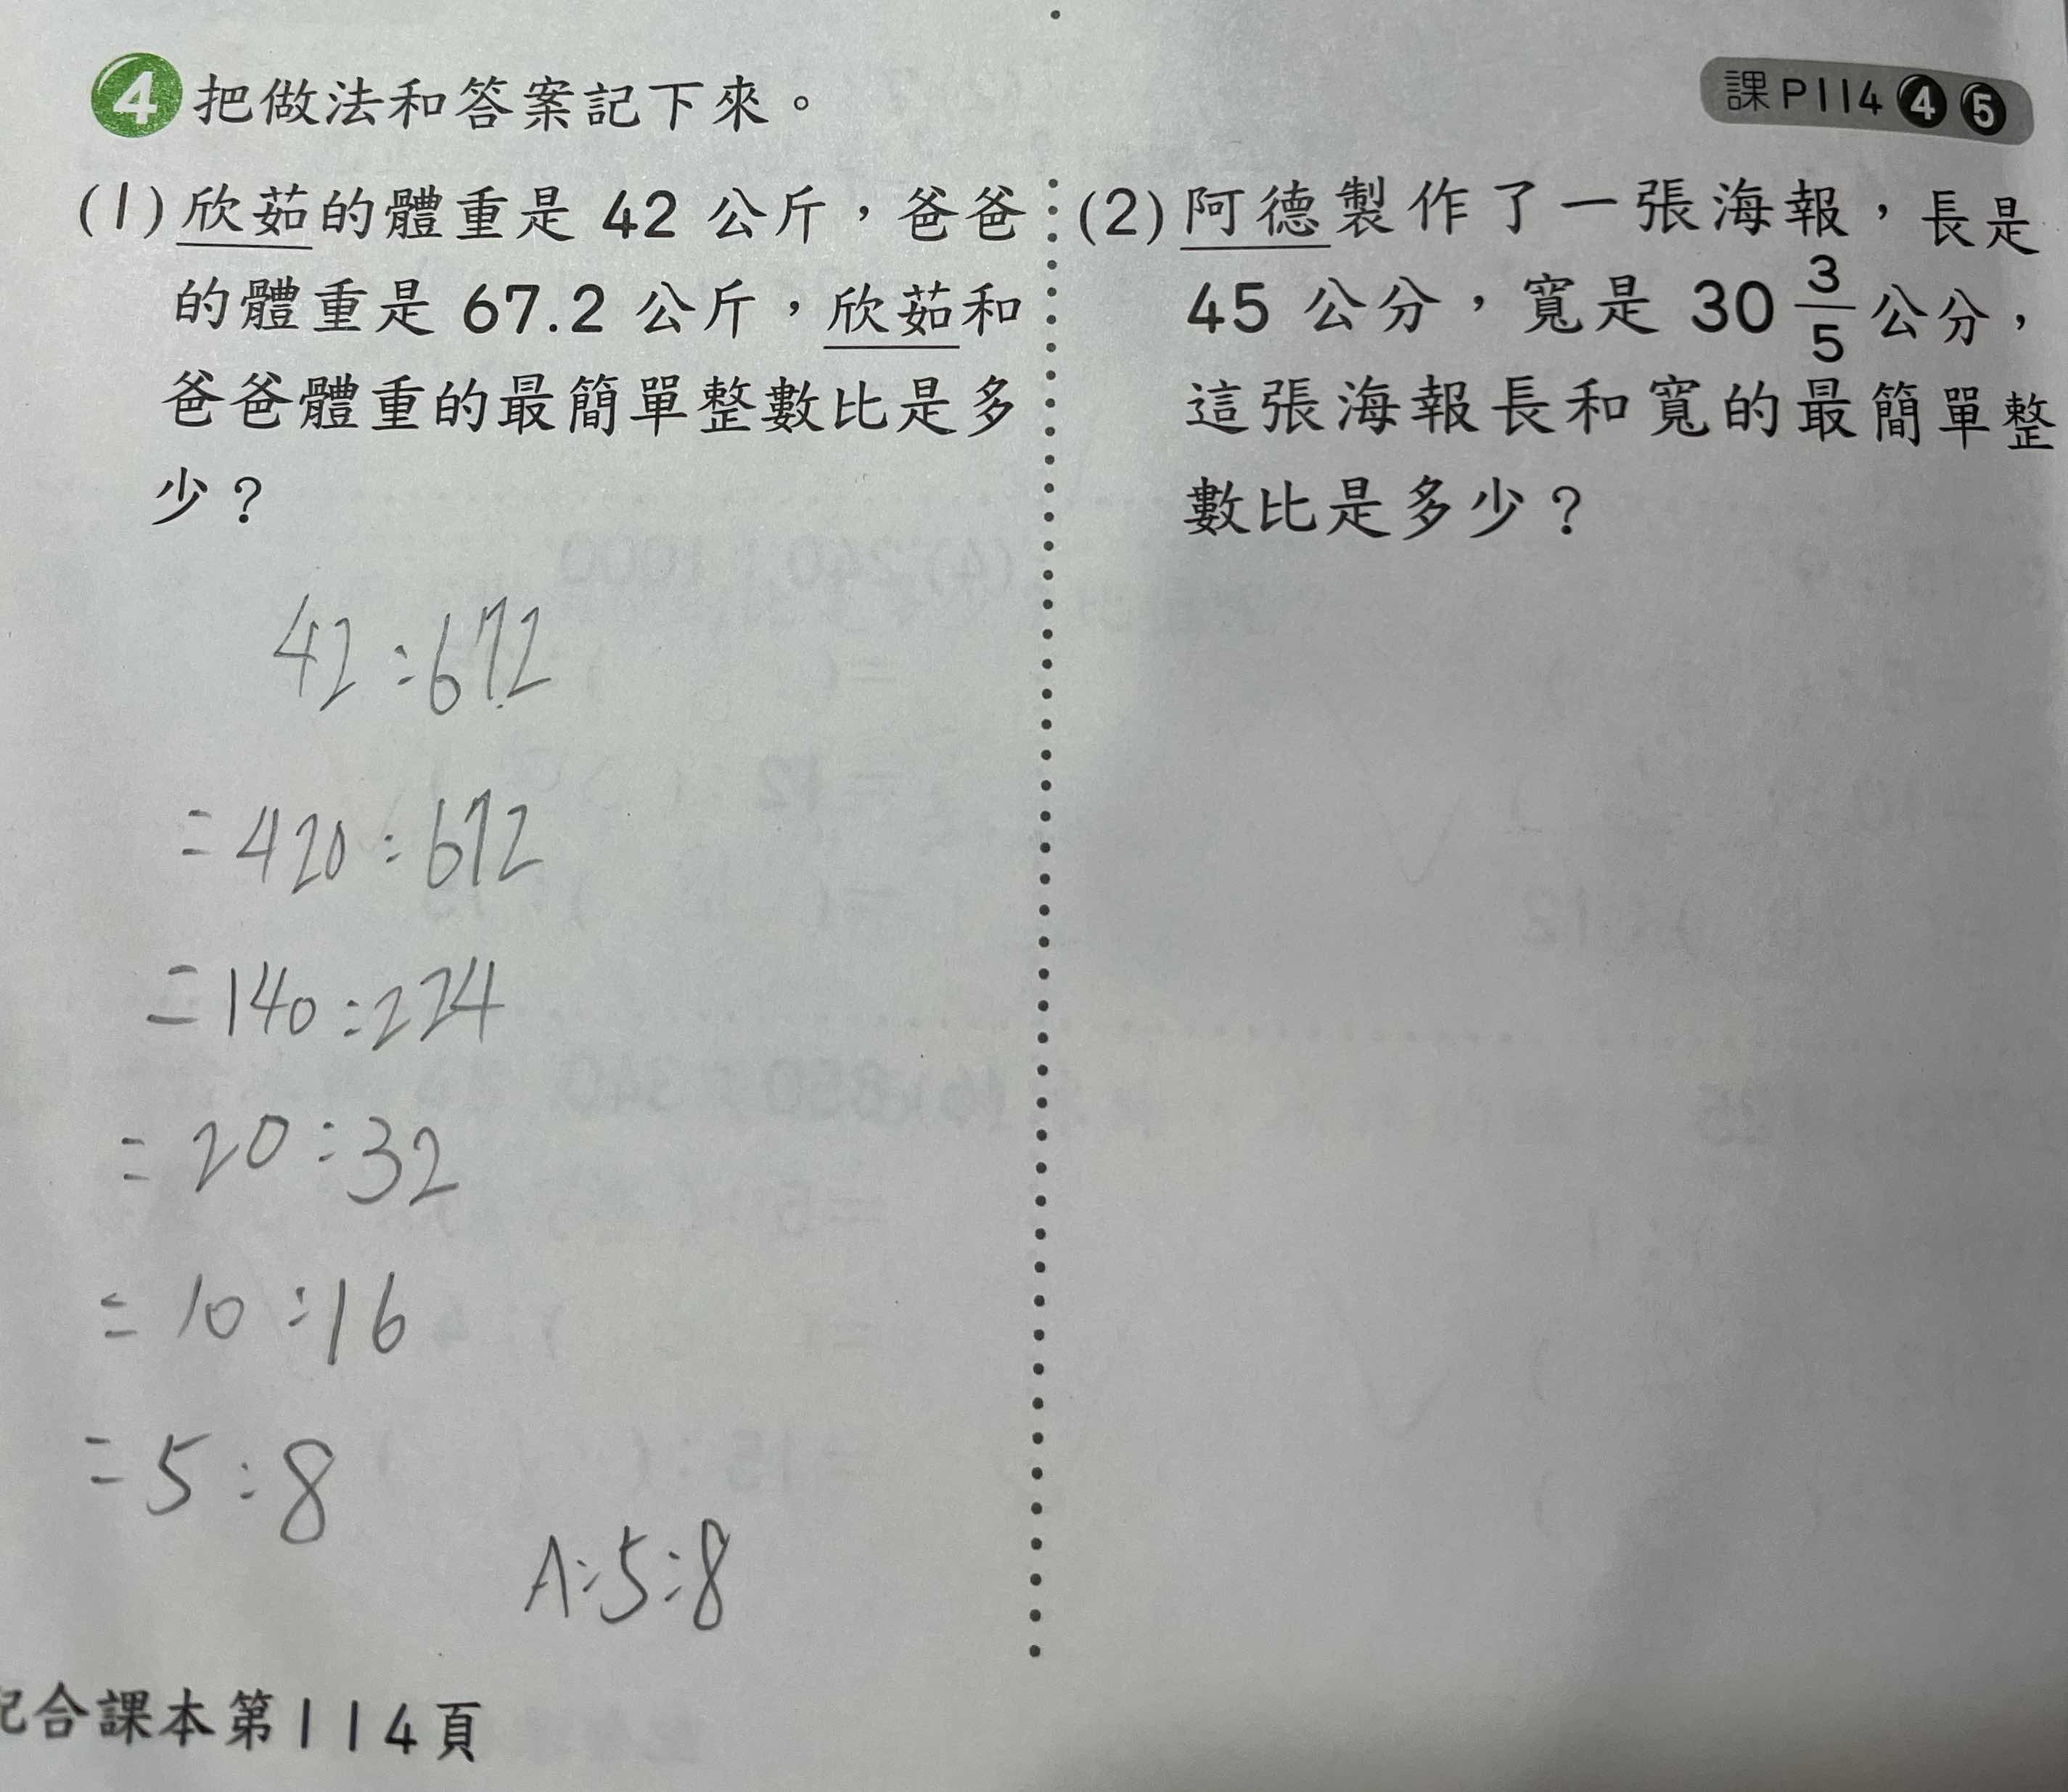 4 把做法和答案記下來。
課P114 4 5
(1) 欣茹的體重是 42 公斤，爸爸
的體重是 67.2 公斤，欣茹和
爸爸體重的最簡單整數比是多
少？
42:67.2
=420:672
=140:224
=20:32
=10:16
=5:8
A:5:8
(2) 阿德製作了一張海報，長是
45 公分，寬是 30 3/5 公分，
這張海報長和寬的最簡單整
數比是多少？
配合課本第114頁